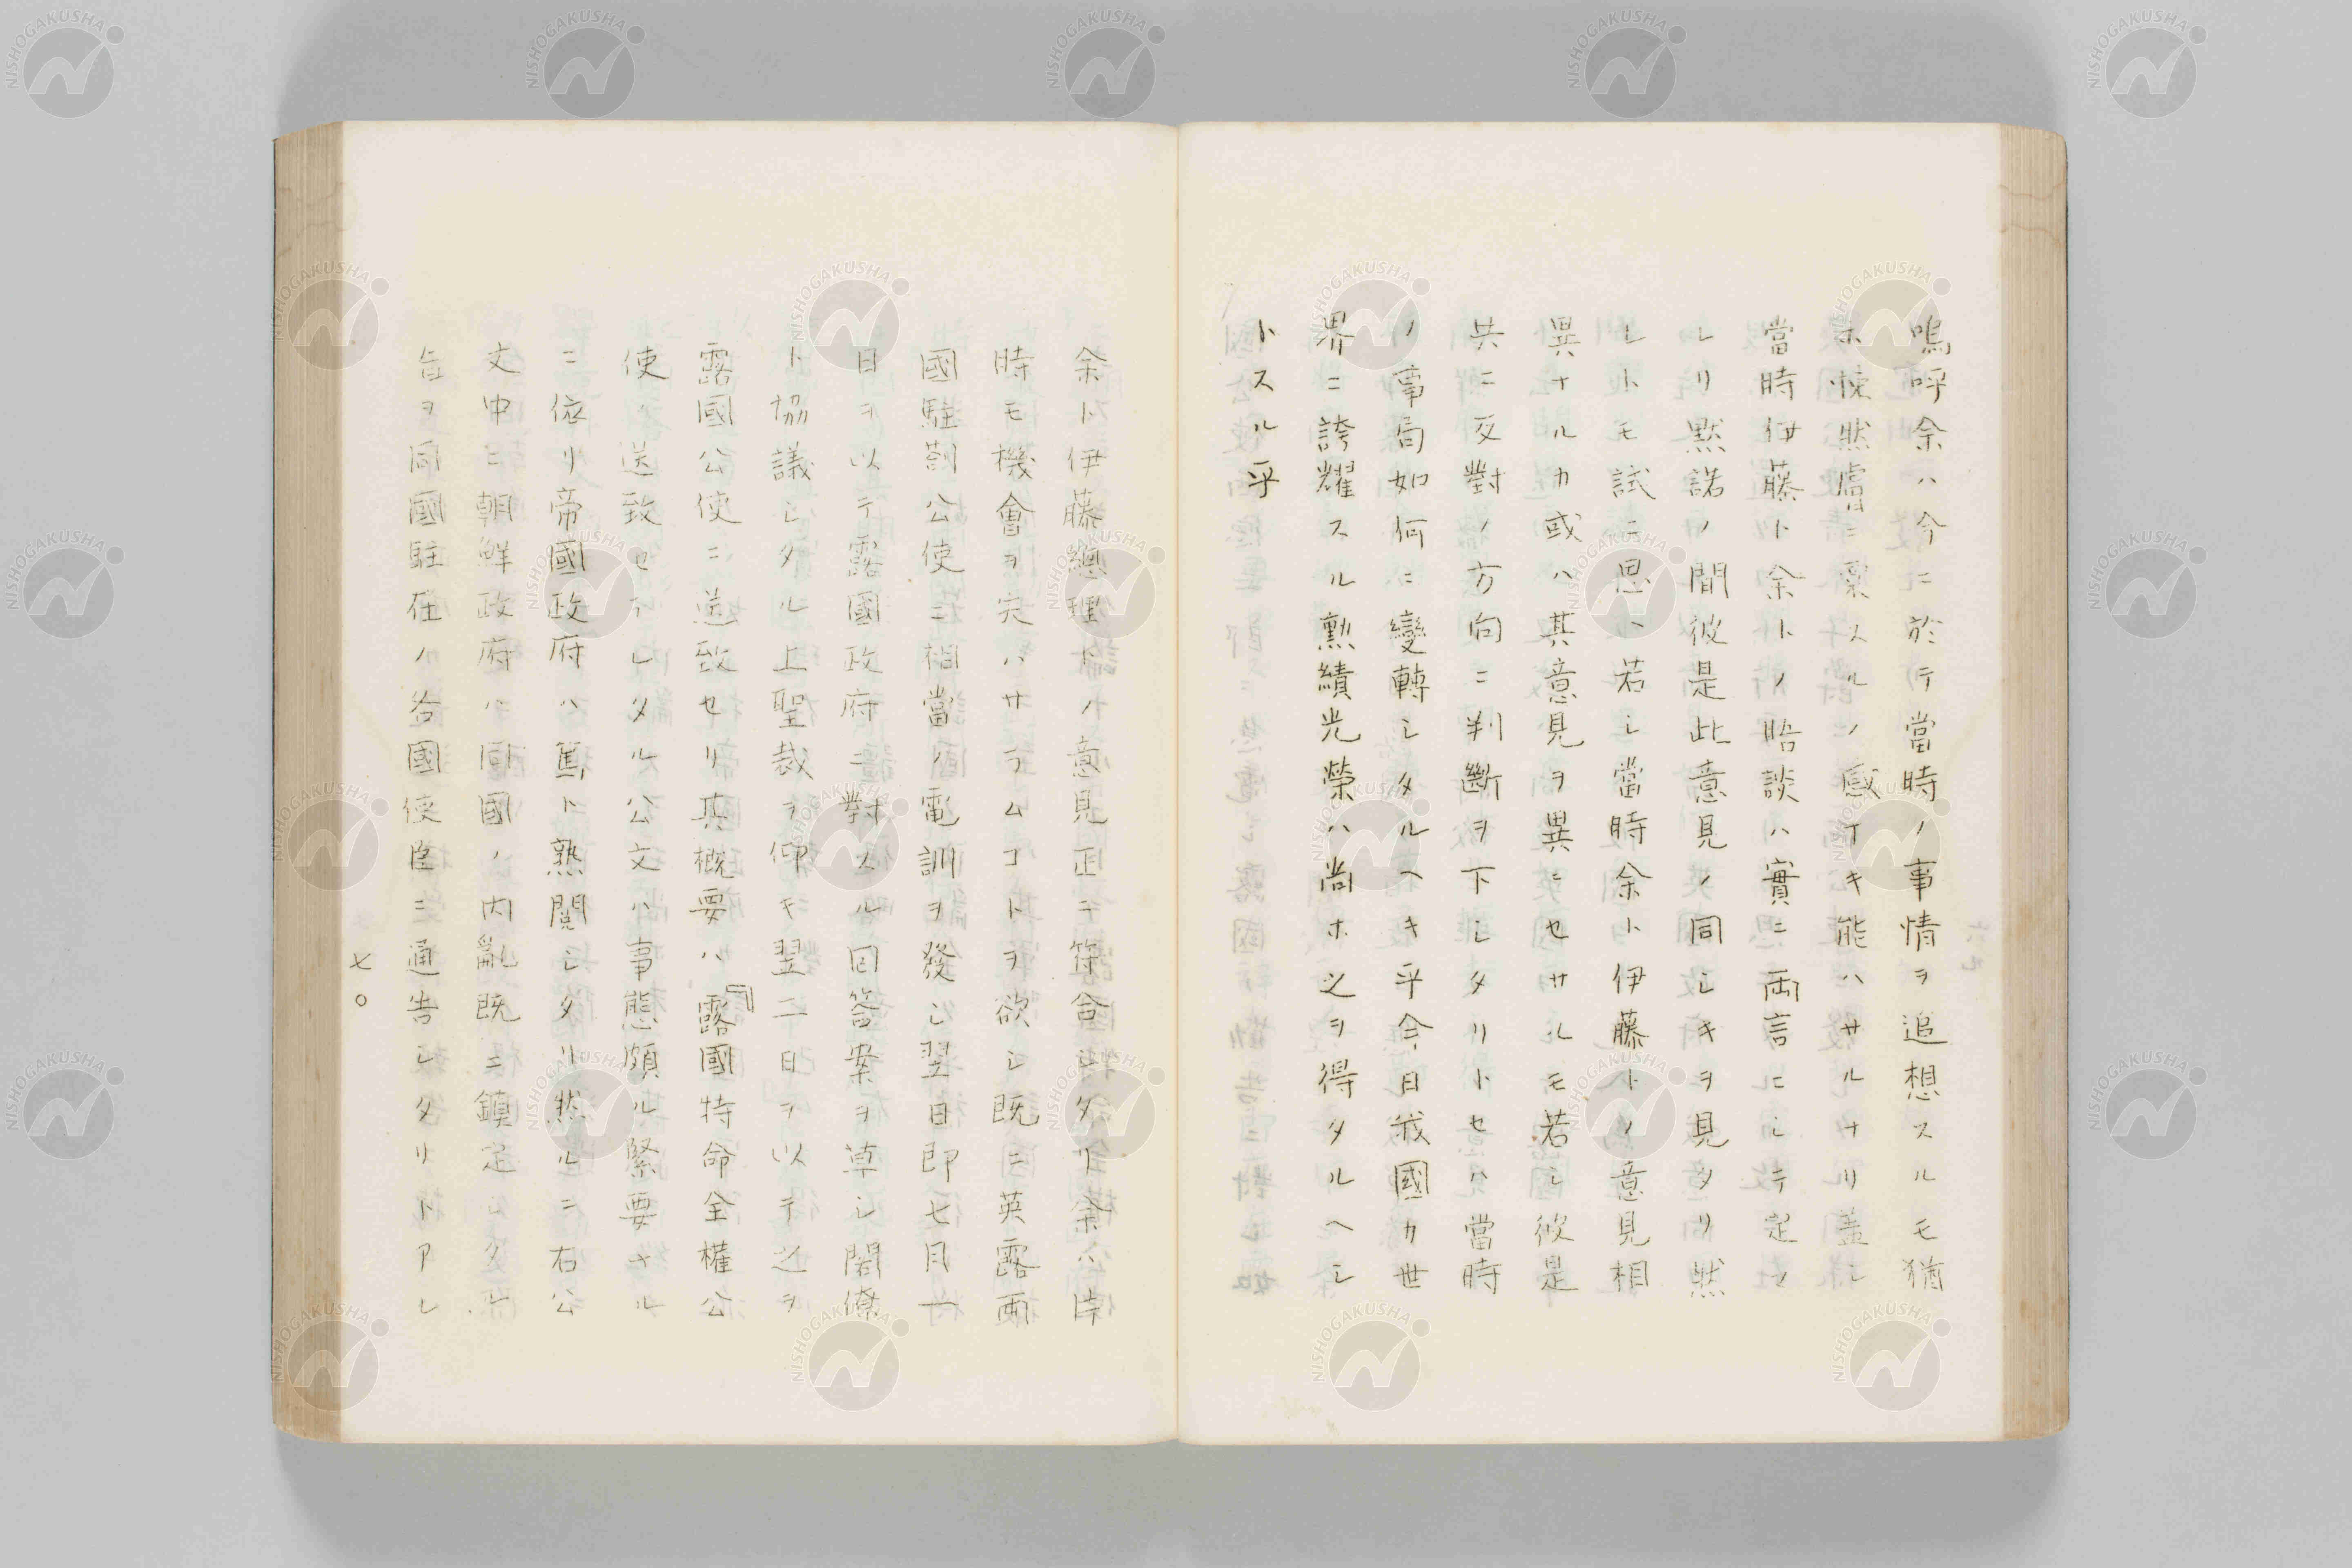 嗚呼余ハ今ニ於テ當時ノ事情ヲ追想スルモ猶
ホ悚然膚ニ粟スルノ感ナキ能ハサルナリ蓋シ
當時伊藤ト余トノ晤談ハ實ニ両言ニシテ定ン
レリ黙諾ノ間彼是此意見ノ同シキヲ見タリ然
レトモ試ニ思ヘ若シ當時余ト伊藤トノ意見相
異ナルカ或ハ其意見ヲ異ニセサルモ若シ彼是
共ニ反對ノ方向ニ判斷ヲ下シタリトセハ當時
ノ事局如何ニ變轉シタルヘキ乎今日我國カ世
界ニ誇耀スル勲績光榮ハ尚ホ之ヲ得タルヘシ
トスル乎
余ト伊藤總理トノ意見正ニ符合シタリ余ハ片
時モ機會ヲ失ハサラムコトヲ欲シ既ニ英露両
國駐劄公使ニ相當ノ電訓ヲ發シ翌日即七月一
日ヲ以テ露國政府ニ對スル回答案ヲ草シ閣僚
ト協議シタル上聖裁ヲ仰キ翌二日ヲ以テ之ヲ
露國公使ニ送致セリ其概要ハ『露國特命全權公
使ノ送致セラレタル公文ハ事態頗ル緊要ナル
ニ依リ帝國政府ハ篤ト熟閲シタリ然ルニ右公
文中ニ朝鮮政府ハ同國ノ内亂既ニ鎮定シタル
旨ヲ同國駐在ノ各國使臣ニ通告シタリトアレ
七〇
NISHOGAKUSHA